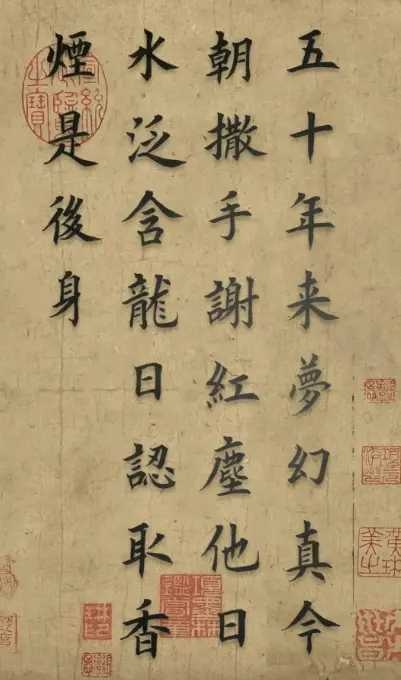 五十年来夢幻真今
朝撒手謝紅塵他日
水泛含龍日認取香
煙是後身